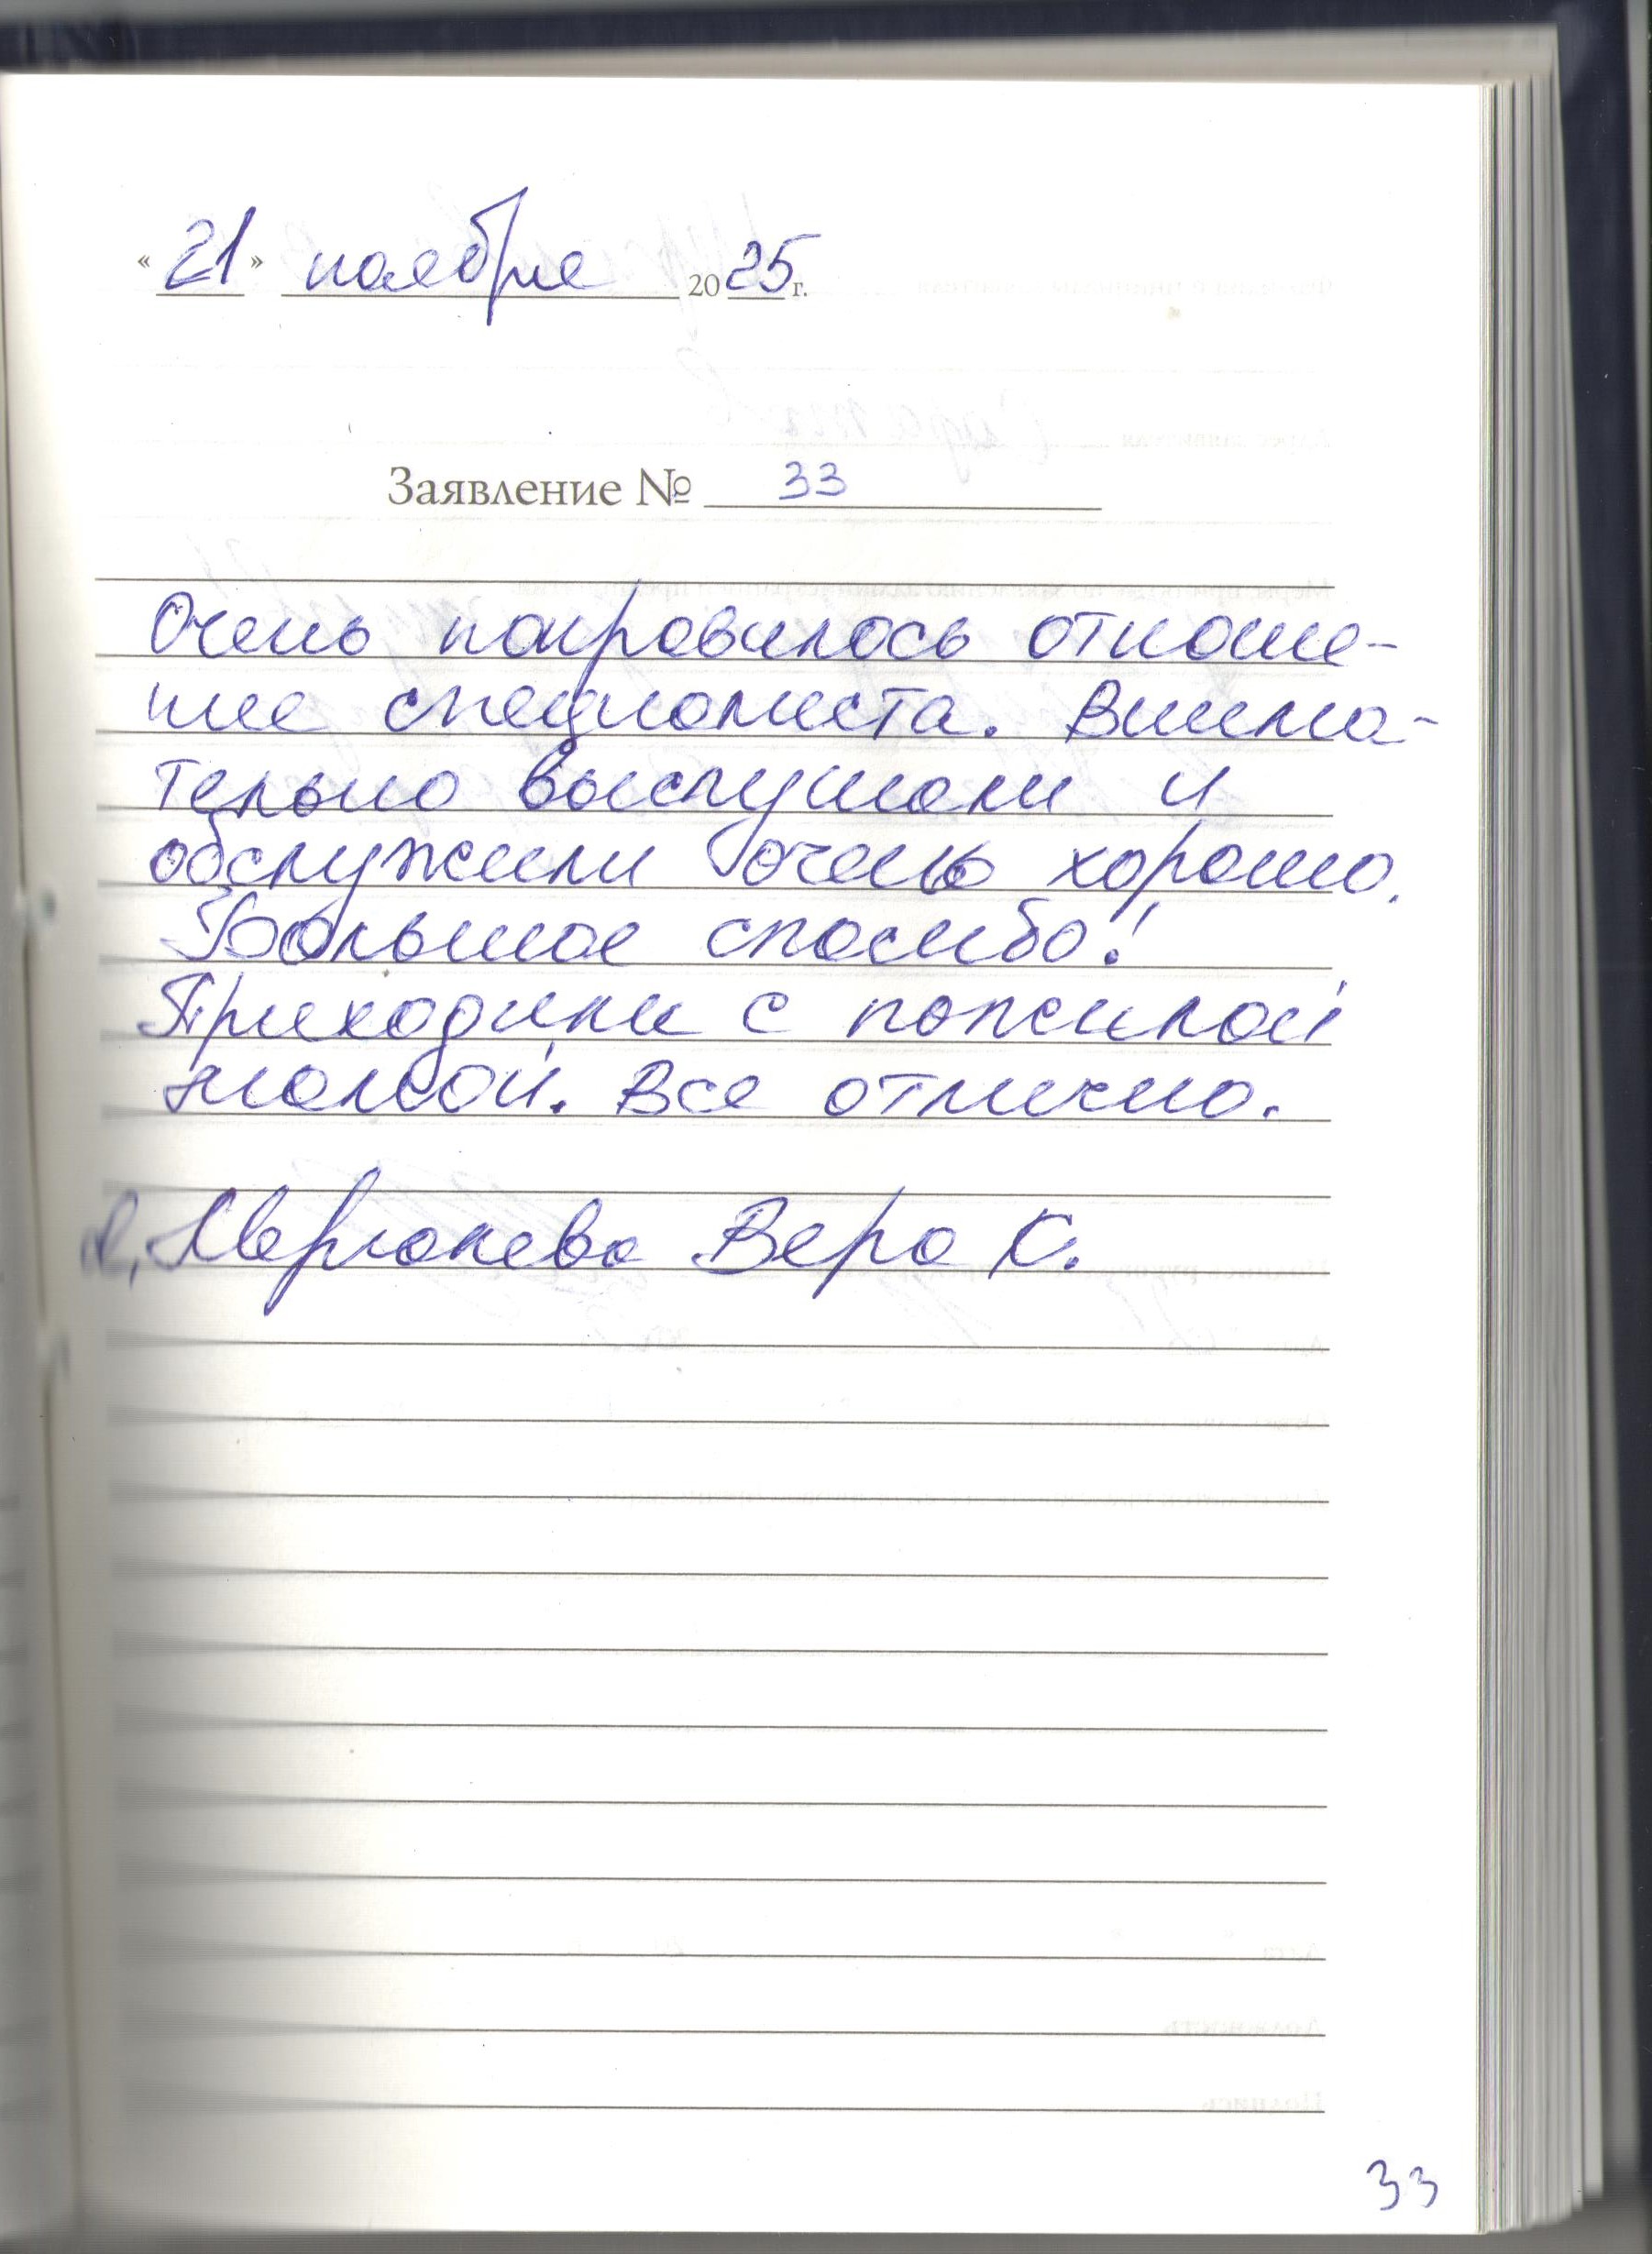 « 21 » ноября 2025 г.
Заявление № 33
Очень понравилось отноше-
ние специалиста. Внима-
тельно выслушали и
обслужили очень хорошо.
Большое спасибо!
Приходили с пожилой
мамой. Все отлично.
Вера К.
33